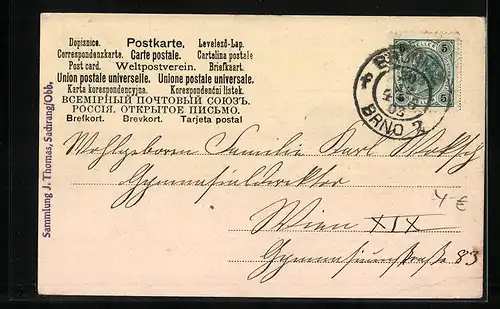 Dopisnice. Postkarte. Levelező-Lap.
Correspondenzkarte. Carte postale. Cartolina postale
Post card. Weltpostverein. Briefkaart.
Union postale universelle. Unione postale universale.
Karta korespondencyjna. Korespondenční lístek.
ВСЕМІРНЫЙ ПОЧТОВЫЙ СОЮЗЪ.
РОССІЯ. ОТКРЫТОЕ ПИСЬМО.
Brefkort. Brevkort. Tarjeta postal
5 HELLER 5
BRNO
Sammlung J. Thomas, Sachrang/Obb.
Wohlgeboren Familie Karl
Gymnasialdirektor
Wien XIX
4 €
Gymnasiumstraße 83